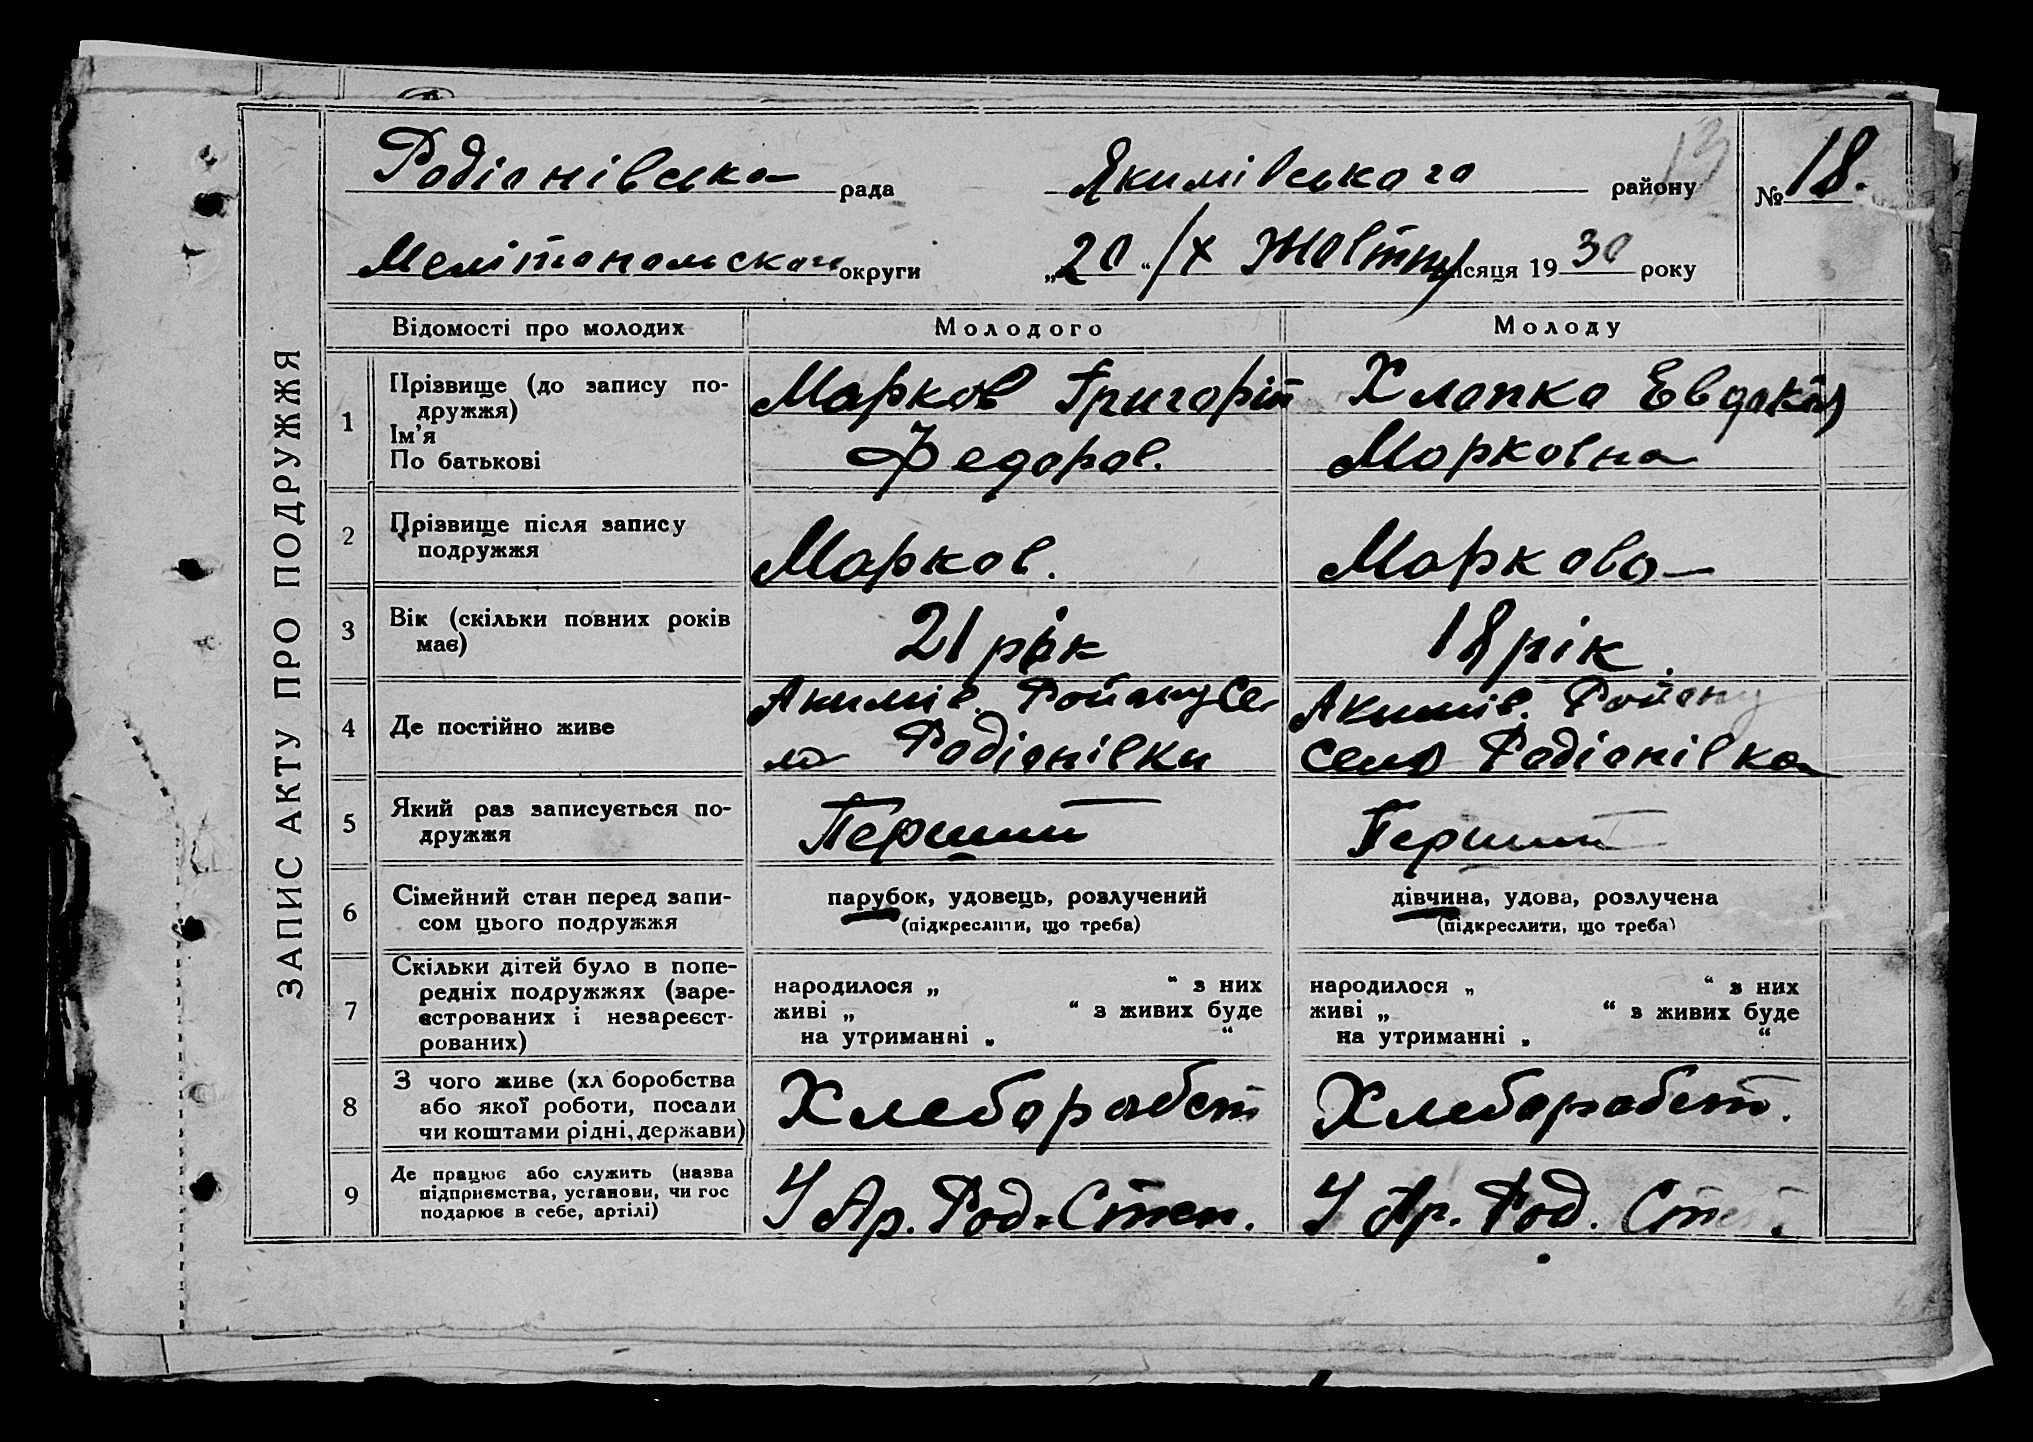 ЗАПИС АКТУ ПРО ПОДРУЖЖЯ
Родіонівська рада Якимівського району 13 № 18.
Мелітопольского округи „20“ /X Жовтня місяця 1930 року
Відомості про молодих Молодого Молоду
1 Прізвище (до запису по-
дружжя)
Ім’я
По батькові
Марков Григорій
Федоров.
Хлопко Евдокія
Морковна
2 Прізвище після запису
подружжя
Марков.
Маркова
3 Вік (скільки повних років
має)
21 рік
18 рік.
4 Де постійно живе
Акимів. Району Се
ло Родіонівки
Акимів. Району
село Родіонівка
5 Який раз записується по-
дружжя
Перший
Перший
6 Сімейний стан перед запи-
сом цього подружжя
парубок, удовець, розлучений
(підкреслити, що треба)
дівчина, удова, розлучена
(підкреслити, що треба)
7 Скільки дітей було в попе-
редніх подружжях (заре-
єстрованих і незареєст-
рованих)
народилося „ “ з них
живі „ “ з живих буде
на утриманні „ “
народилося „ “ з них
живі „ “ з живих буде
на утриманні „ “
8 З чого живе (хл боробства
або якої роботи, посади
чи коштами рідні, держави)
Хлеборобст
Хлеборобст.
9 Де працює або служить (назва
підприємства, установи, чи гос
подарює в себе, артілі)
У Ар. Род. Степ.
У Ар. Род. Степ.